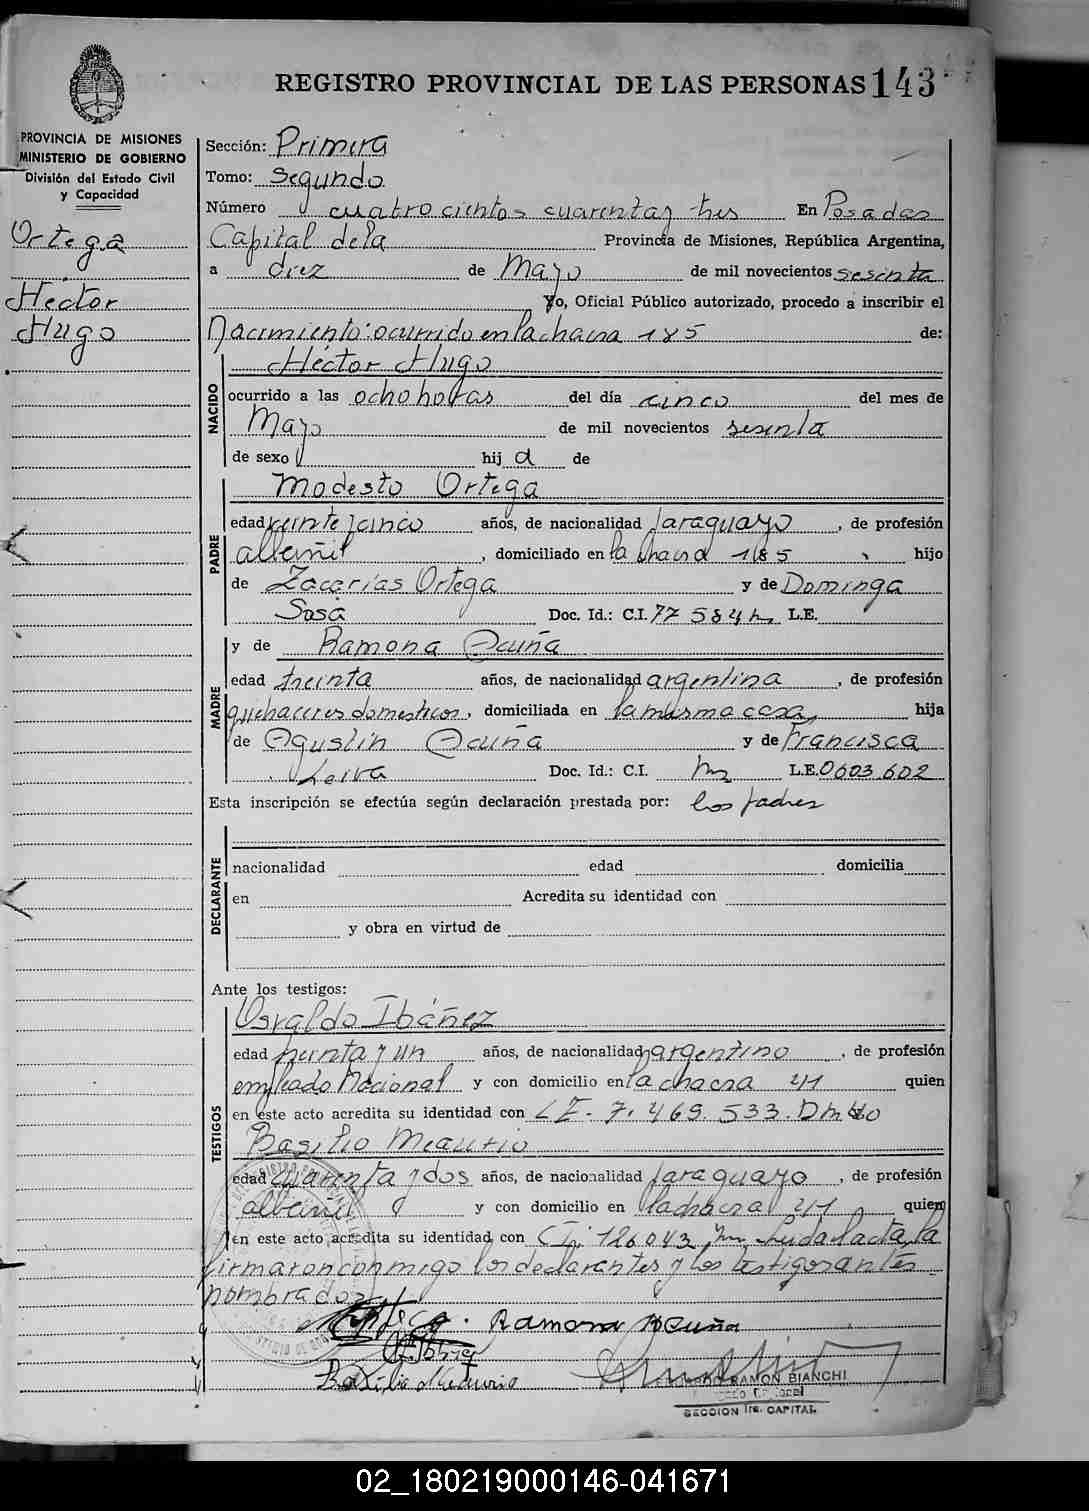 REGISTRO PROVINCIAL DE LAS PERSONAS 143
PROVINCIA DE MISIONES
MINISTERIO DE GOBIERNO
División del Estado Civil
y Capacidad
Ortega
Héctor
Hugo
Sección: Primera
Tomo: Segundo
Número cuatrocientos cuarenta y tres En Posadas
Capital de la Provincia de Misiones, República Argentina,
a diez de Mayo de mil novecientos sesenta
Yo, Oficial Público autorizado, procedo a inscribir el
Nacimiento: ocurrido en la chacra 185 de:
NACIDO
Héctor Hugo
ocurrido a las ocho horas del día cinco del mes de
Mayo de mil novecientos sesenta
de sexo hij o de
PADRE
Modesto Ortega
edad veinte y cinco años, de nacionalidad paraguayo, de profesión
albañil, domiciliado en la chacra 185 hijo
de Zacarías Ortega y de Dominga
Sosa Doc. Id.: C.I. 77584 L.E.
y de Ramona Acuña
MADRE
edad treinta años, de nacionalidad argentina, de profesión
quehaceres domesticos, domiciliada en la misma casa, hija
de Agustin Acuña y de Francisca
Leiva Doc. Id.: C.I. L.E. 0603.602
Esta inscripción se efectúa según declaración prestada por: los padres
DECLARANTE
nacionalidad edad domicilia
en Acredita su identidad con
y obra en virtud de
Ante los testigos:
TESTIGOS
Osvaldo Ibáñez
edad treinta y un años, de nacionalidad argentino, de profesión
empleado Nacional y con domicilio en la chacra 41 quien
en este acto acredita su identidad con LE. 7.469.533.
Basilio
edad cuarenta y dos años, de nacionalidad paraguayo, de profesión
albañil y con domicilio en la chacra 41 quien
en este acto acredita su identidad con CI. 126043 Leida el acta la
firmaron conmigo los declarantes y los testigos antes
nombrados
Ramona Acuña
Basilio
RAMON BIANCHI
SECCION 1ra. CAPITAL
02_180219000146-041671